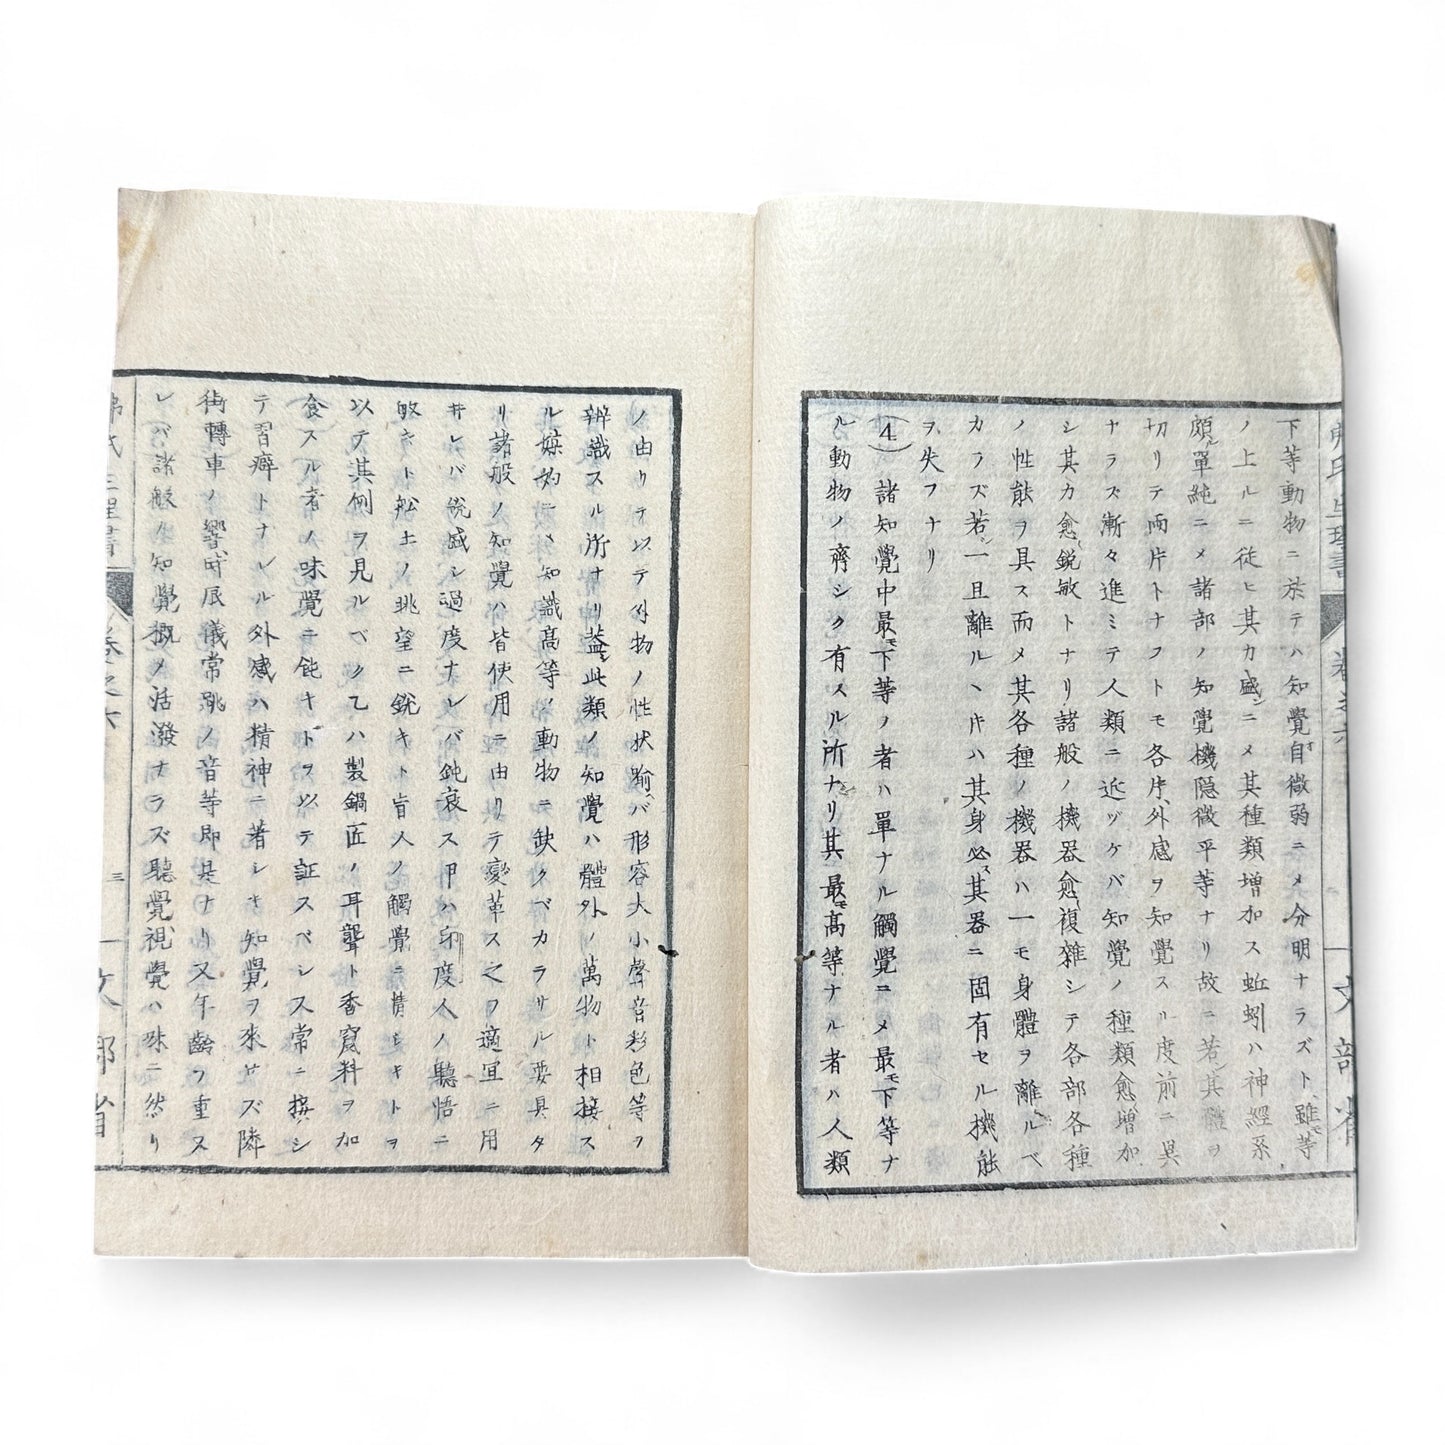 下等動物ニ於テハ知覺自微弱ニメ分明ナラズト雖等
ノ上ルニ從ヒ其力盛ニメ其種類増加ス蚯蚓ハ神經系
頗單純ニメ諸部ノ知覺機隱微平等ナリ故ニ若其體ヲ
切リテ両片トナフトモ各片外感ヲ知覺スル度前ニ異
ナラズ漸々進ミテ人類ニ近ヅケバ知覺ノ種類愈增加
シ其力愈鋭敏トナリ諸般ノ機器愈複雜シテ各部各種
ノ性能ヲ具ス而メ其各種ノ機器ハ一モ身體ヲ離ルベ
カラズ若一旦離ルヽ片ハ其身必其器ニ固有セル機能
ヲ失フナリ
4 諸知覺中最下等ノ者ハ單ナル觸覺ニメ最下等ナ
ル動物ノ齊シク有スル所ナリ其最高等ナル者ハ人類
ノ由リテ以テ外物ノ性状喻バ形容大小聲音彩色等ヲ
辨識スル所ナリ蓋此類ノ知覺ハ體外ノ萬物ト相接ス
ル媒妁ニメ知識高等ノ動物ニ缺クベカラザル要具タ
リ諸般ノ知覺ハ皆使用ニ由リテ變革ス之ヲ適宜ニ用
井レバ銳盛シ過度ナレバ鈍衰ス甲ハ印度人ノ聽悟ニ
敏キト舩上ノ眺望ニ銳キト盲人ノ觸覺ニ精シキトヲ
以テ其例ヲ見ルベク乙ハ製鍋匠ノ耳聾ト香竄料ヲ加
食スル者ノ味覺ニ鈍キトヲ以テ証スベシ又常ニ接シ
テ習癖トナレル外感ハ精神ニ著シキ知覺ヲ來サズ隣
街轉車ノ響時辰儀常跳ノ音等即是ナリ又年齡ヲ重ス
レバ諸般ノ知覺概メ活潑ナラズ聽覺視覺ハ殊ニ然リ
氏生理書 卷之六 三 文部省